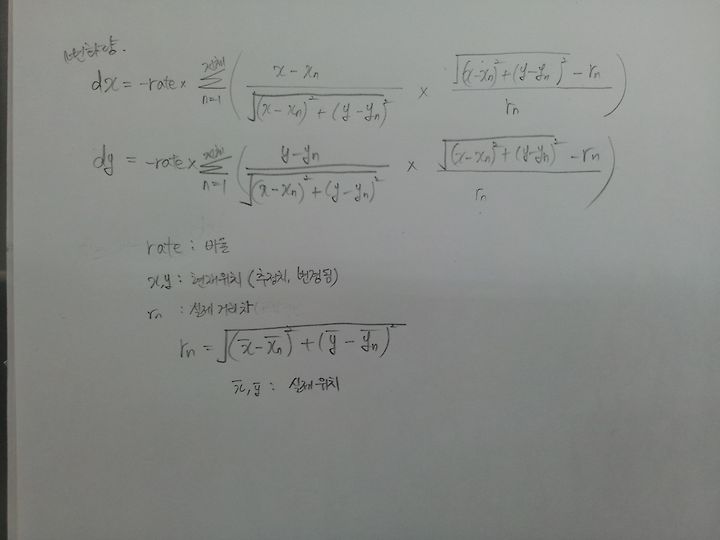 변화량.
dx = -rate × 전체∑n=1 ( (x - xₙ) / √((x - xₙ)² + (y - yₙ)²) × (√((x - xₙ)² + (y - yₙ)²) - rₙ) / rₙ )
dy = -rate × 전체∑n=1 ( (y - yₙ) / √((x - xₙ)² + (y - yₙ)²) × (√((x - xₙ)² + (y - yₙ)²) - rₙ) / rₙ )
rate : 비율
x,y : 현재위치 (추정치, 변경됨)
rₙ : 실제 거리차
rₙ = √((x̄ - x̄ₙ)² + (ȳ - ȳₙ)²)
x̄, ȳ : 실제 위치